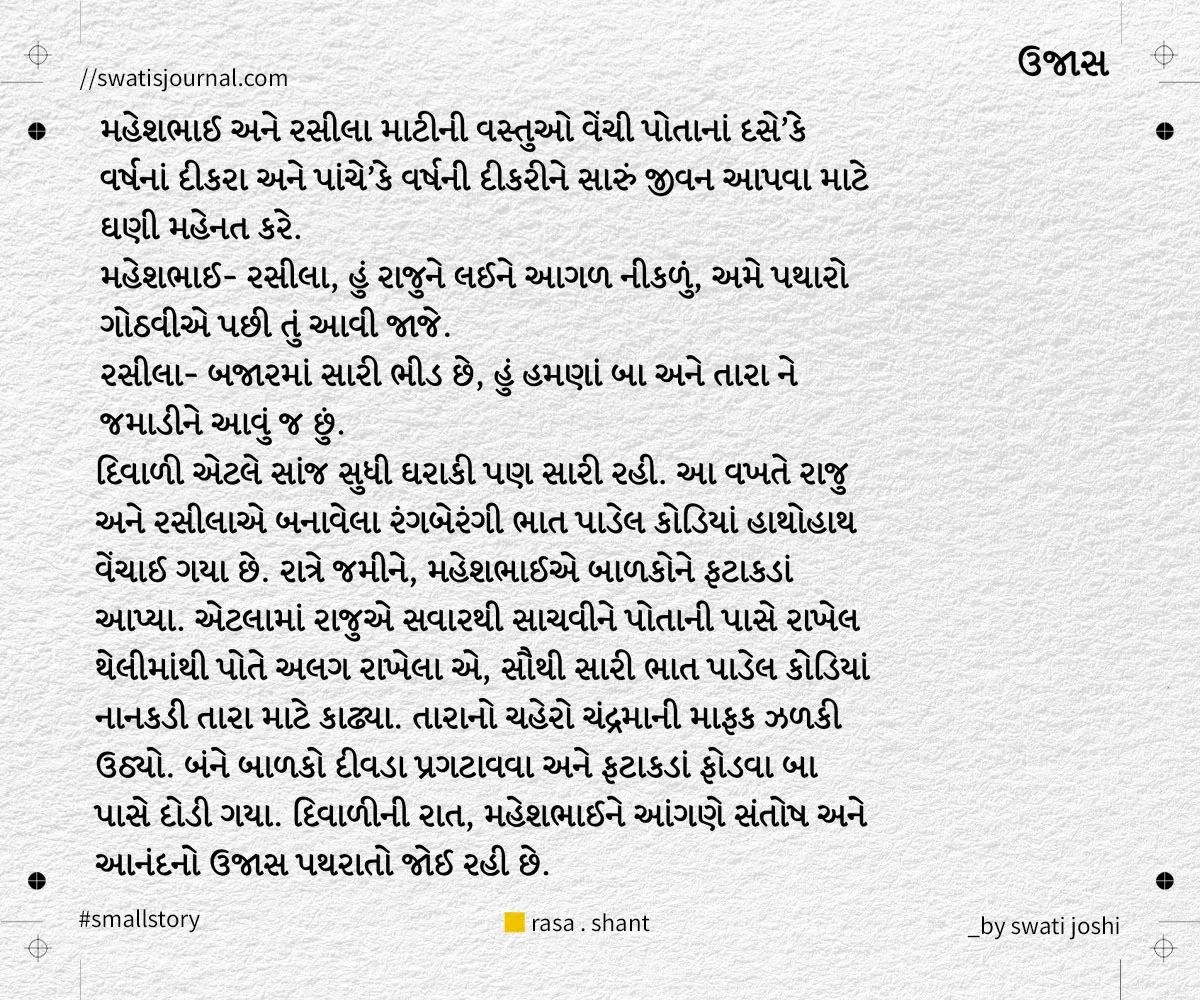 //swatisjournal.com
ઉજાસ
મહેશભાઈ અને રસીલા માટીની વસ્તુઓ વેંચી પોતાનાં દસે’કે
વર્ષનાં દીકરા અને પાંચે’કે વર્ષની દીકરીને સારું જીવન આપવા માટે
ઘણી મહેનત કરે.
મહેશભાઈ- રસીલા, હું રાજુને લઈને આગળ નીકળું, અમે પથારો
ગોઠવીએ પછી તું આવી જાજે.
રસીલા- બજારમાં સારી ભીડ છે, હું હમણાં બા અને તારા ને
જમાડીને આવું જ છું.
દિવાળી એટલે સાંજ સુધી ઘરાકી પણ સારી રહી. આ વખતે રાજુ
અને રસીલાએ બનાવેલા રંગબેરંગી ભાત પાડેલ કોડિયાં હાથોહાથ
વેંચાઈ ગયા છે. રાત્રે જમીને, મહેશભાઈએ બાળકોને ફટાકડાં
આપ્યા. એટલામાં રાજુએ સવારથી સાચવીને પોતાની પાસે રાખેલ
થેલીમાંથી પોતે અલગ રાખેલા એ, સૌથી સારી ભાત પાડેલ કોડિયાં
નાનકડી તારા માટે કાઢ્યા. તારાનો ચહેરો ચંદ્રમાની માફક ઝળકી
ઉઠ્યો. બંને બાળકો દીવડા પ્રગટાવવા અને ફટાકડાં ફોડવા બા
પાસે દોડી ગયા. દિવાળીની રાત, મહેશભાઈને આંગણે સંતોષ અને
આનંદનો ઉજાસ પથરાતો જોઈ રહી છે.
#smallstory
rasa . shant
_by swati joshi